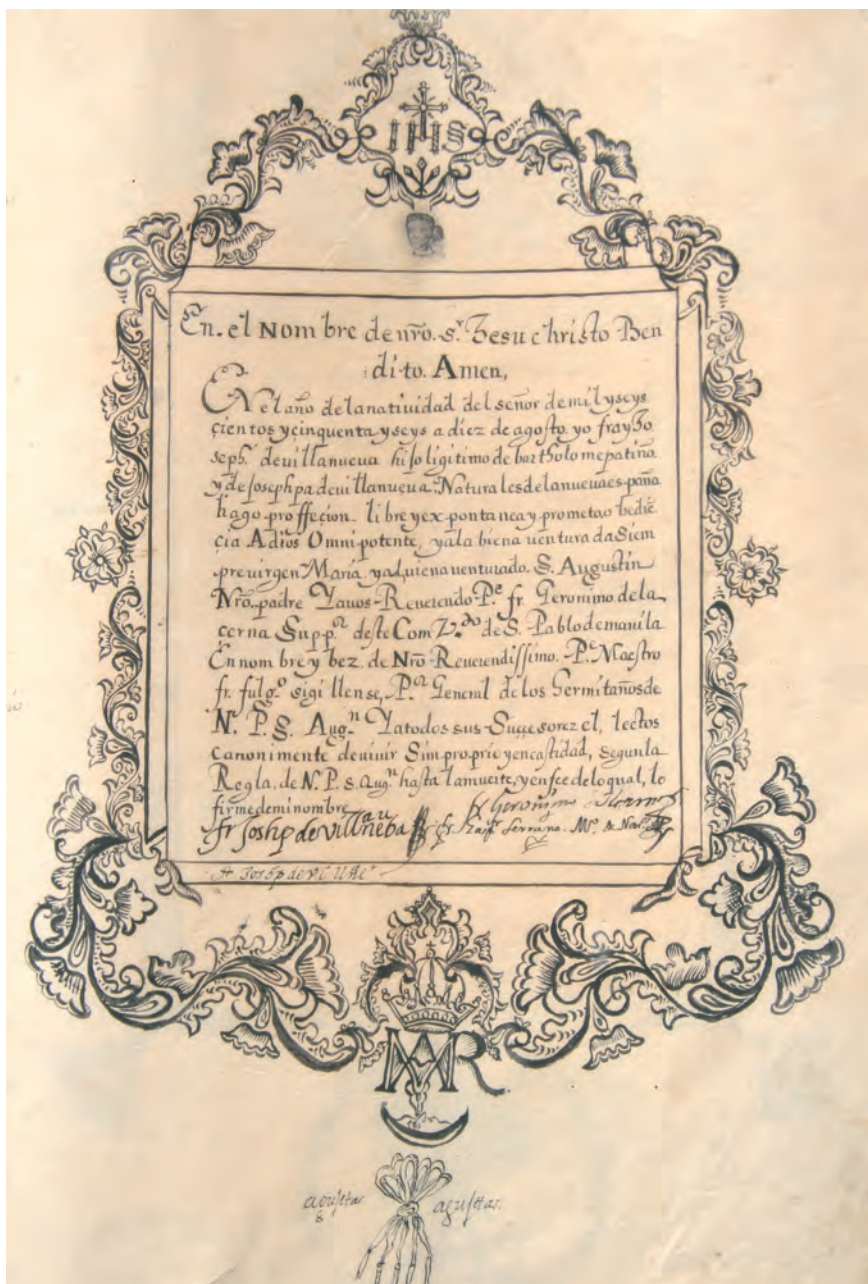 IHS
En. el Nombre de nr̃o. s.r Jesu christo Ben
di-to. Amen,
EN el año de la natividad del señor de mil y seys
çientos y cinquenta y seys a diez de agosto. yo fray Jo
seph. de villanueva hijo ligitimo de bartholome patiño
y de josephpa de villanueva. Naturales de la nueva es-paña
hago proffecion. libre y ex pontanea y prometao bediẽ
cia A dios Omnipotente, ya la biena ventura da Siem
pre virgen Maria y al viena venturado. S. Augustin
Nr̃o. padre Yavos-Reverendo P.e fr Geronimo de la
cerna Supp.or deste Com V.do de S. Pablo de manila
En nombre y bez. de Nr̃o Reverendissimo. P.e Maestro
fr. fulg.o sigillense, P.or General de los Hermitaños de
N. P. S. Aug.n Ya todos sus-Suççesorez el, lectos
canonimente de vivir Sin proprio y en castidad, segun la
Regla. de N. P. s. Aug.n hasta la muerte, y en fee de lo qual, lo
firme de mi nombre
fr Joshp de villanueba fr Geronimo
Serrano. M.o de Nov.s
MAR
agujetas agujettas.